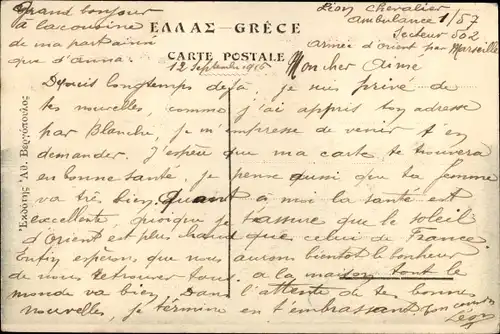 Grand bonjour
à la cousine
de ma part ainsi
que d'Anna.
ΕΛΛΑΣ-GRÈCE
CARTE POSTALE
12 Septembre 1916
Léon Chevalier
Ambulance 1/57
Secteur 502
Armée d'orient par Marseille
Mon cher Aimé
Depuis longtemps déjà, je suis privé de
tes nouvelles, comme j'ai appris ton adresse
par Blanche, je m'empresse de venir t'en
demander. J'espère que ma carte te trouvera
en bonne santé je pense aussi que ta femme
va très bien. Quant à moi la santé est
excellente, quoique je t'assure que le soleil
d'Orient est plus chaud que celui de France.
Enfin espérons que nous aurons bientôt le bonheur
de nous retrouver tous. à la maison tout le
monde va bien. Dans l'attente de tes bonnes
nouvelles, je termine en t'embrassant ton cousin
Léon
Ἐκδότης Ἀθ.